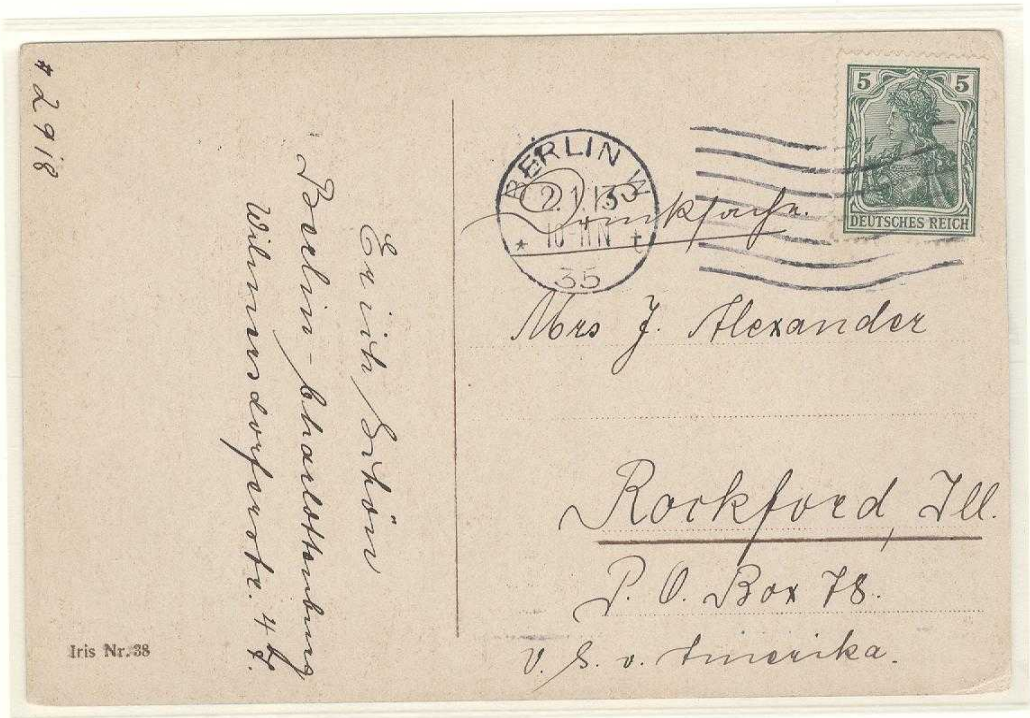 # 2918
Erich Schön
Berlin-Charlottenburg
Wilmersdorferstr.
Iris Nr. 38
BERLIN W
2.1.13
10-11N
35
5 5
DEUTSCHES REICH
Drucksache.
Mrs J. Alexander
Rockford, Ill.
P. O. Box 78.
V. S. v. Amerika.